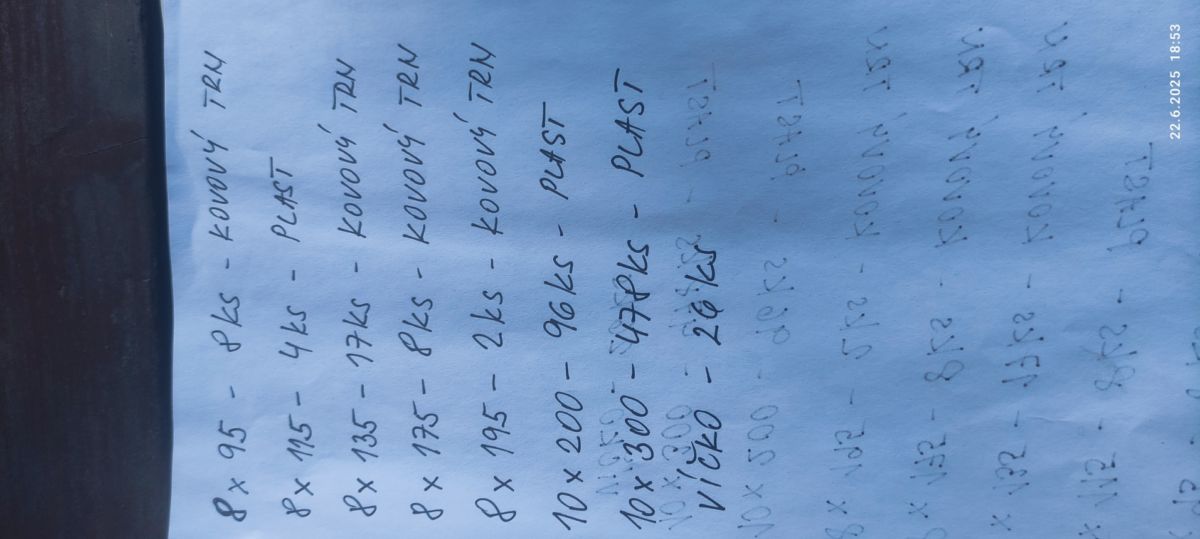 8 x 95 - 8ks - KOVOVÝ TRN
8 x 115 - 4ks - PLAST
8 x 135 - 17ks - KOVOVÝ TRN
8 x 175 - 8ks - KOVOVÝ TRN
8 x 195 - 2ks - KOVOVÝ TRN
10 x 200 - 96ks - PLAST
10 x 300 - 478ks - PLAST
VÍČKO - 26ks
22.6.2025 18:53